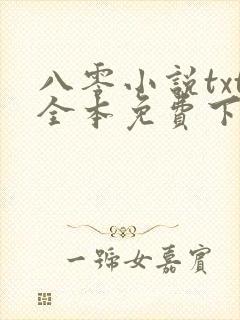 八零小说txt
全本免費下
一號女嘉賓